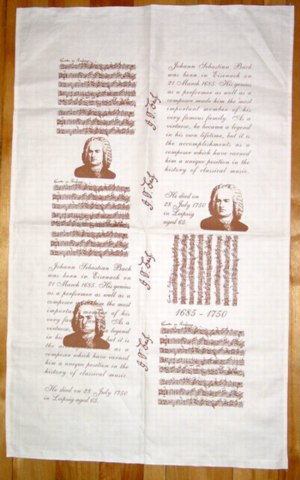 Johann Sebastian Bach
was born in Eisenach on
21 March 1685. His genius
as a performer as well as a
composer made him the most
important member of his
very famous family. As a
virtuoso, he became a legend
in his own lifetime, but it is
the accomplishments as a
composer which have earned
him a unique position in the
history of classical music.
He died on
28 July 1750
in Leipzig
aged 65.
1685 - 1750
Johann Sebastian Bach
was born in Eisenach on
21 March 1685. His genius
as a performer as well as a
composer made him the most
important member of his
very famous As a
virtuoso, legend
in his but it is
the as a
composer which have earned
him a unique position in the
history of classical music.
He died on 28 July 1750
in Leipzig aged 65.